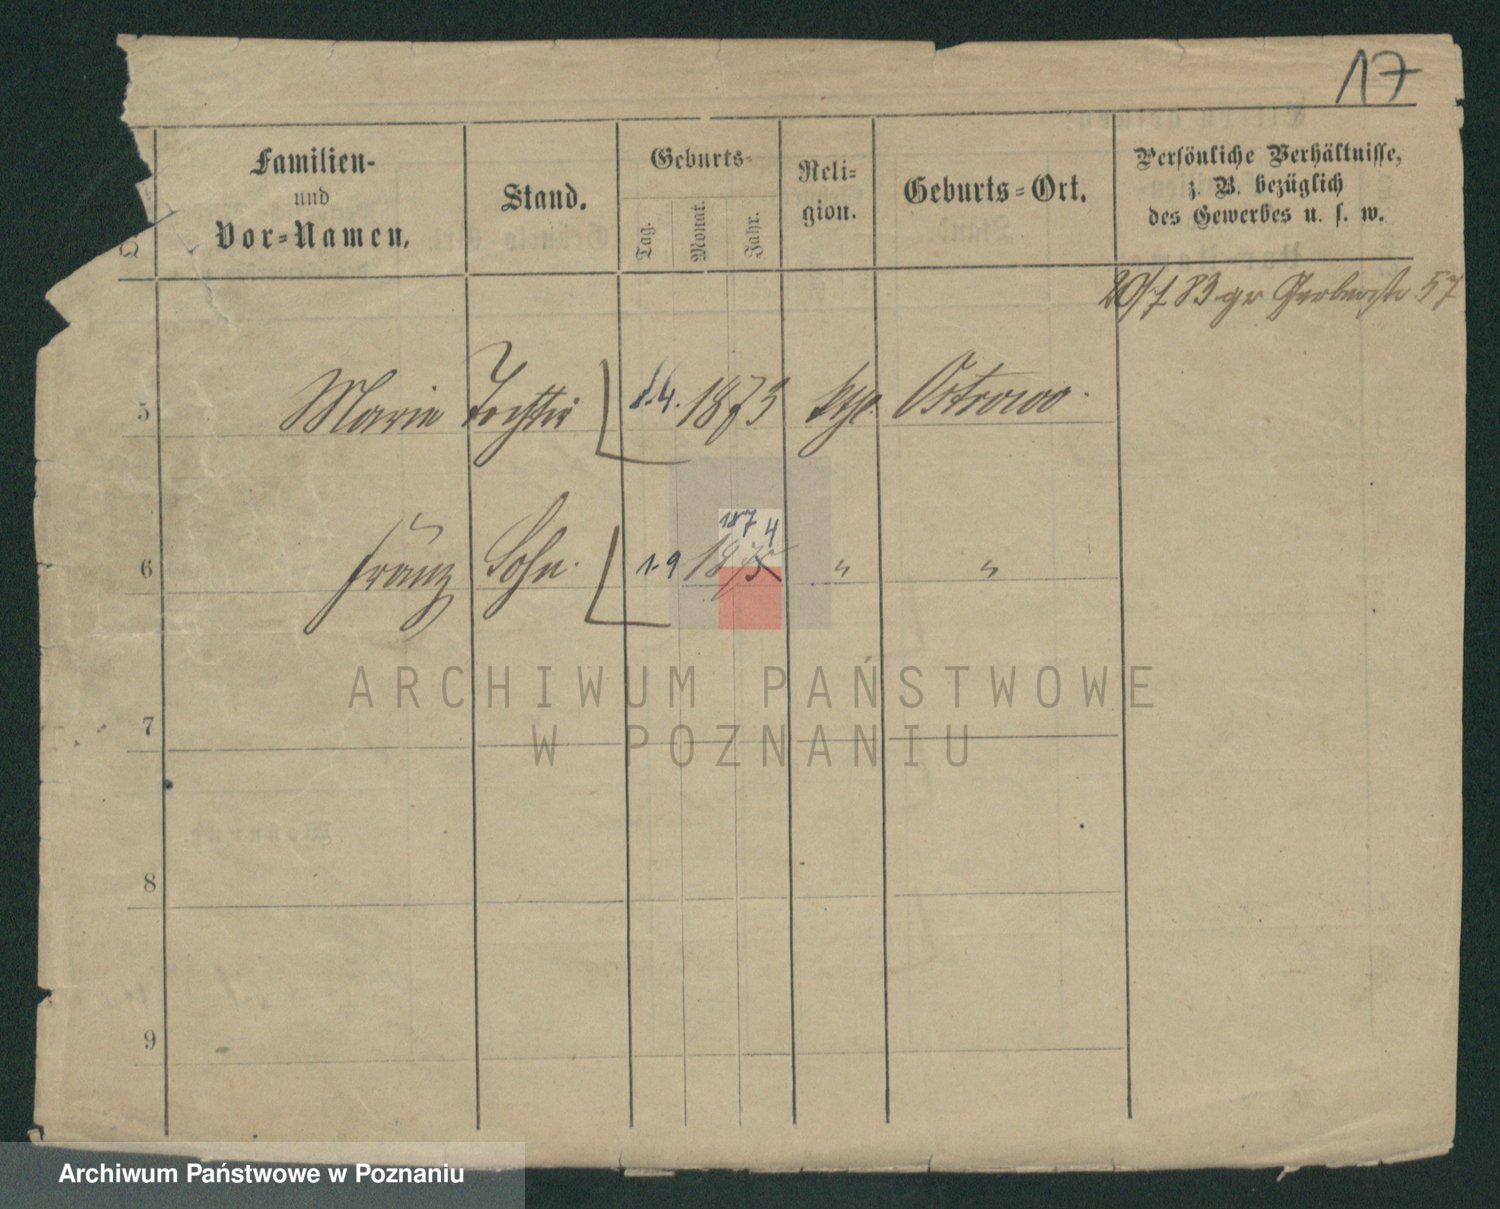 17
Familien-
und
Vor-Namen.
Stand.
Geburts-
Tag.
Monat.
Jahr.
Reli-
gion.
Geburts-Ort.
Persönliche Verhältnisse,
z. B. bezüglich
des Gewerbes u. s. w.
20/7 83 gr Gerberstr 57
5 Marie Tochter 8.4. 1873 kth. Ostrowo.
1874
6 Franz Sohn. 1.9 1875 " "
7
8
9
ARCHIWUM PAŃSTWOWE
W POZNANIU
Archiwum Państwowe w Poznaniu